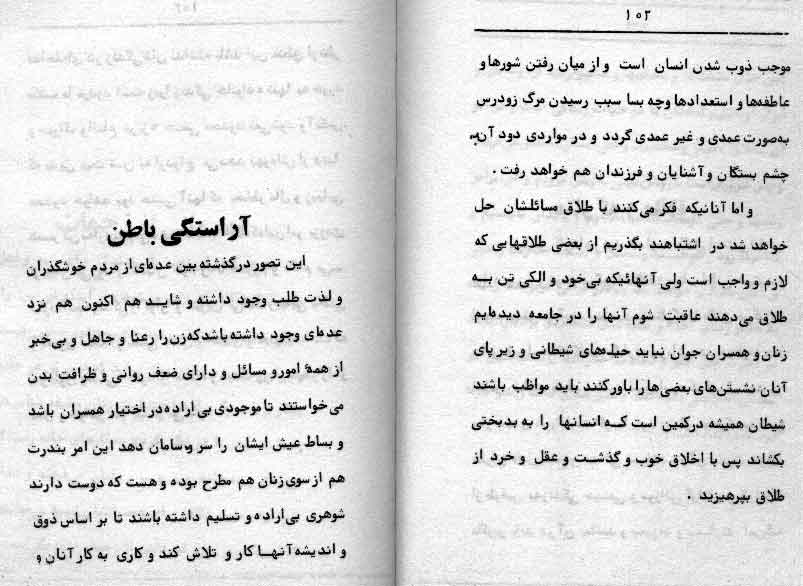 ۱۰۲
موجب ذوب شدن انسان است و از میان رفتن شورها و
عاطفه‌ها و استعدادها وچه بسا سبب رسیدن مرگ زودرس
به‌صورت عمدی و غیر عمدی گردد و در مواردی دود آن به
چشم بستگان و آشنایان و فرزندان هم خواهد رفت .
و اما آنانیکه فکر می‌کنند با طلاق مسائلشان حل
خواهد شد در اشتباهند بگذریم از بعضی طلاقهایی که
لازم و واجب است ولی آنهائیکه بی‌خود و الکی تن بــه
طلاق می‌دهند عاقبت شوم آنها را در جامعه دیده‌ایم
زنان و همسران جوان نباید حیله‌های شیطانی و زیر پای
آنان نشستن‌های بعضی‌ها را باور کنند باید مواظب باشند
شیطان همیشه درکمین است کــه انسانها را به بدبختی
بکشاند پس با اخلاق خوب و گذشت و عقل و خرد از
طلاق بپرهیزید .
آراستگی باطن
این تصور درگذشته بین عده‌ای از مردم خوشگذران
و لذت طلب وجود داشته و شایــد هم اکنون هم نزد
عده‌ای وجود داشته باشد که زن را رعنا و جاهل و بی‌خبر
از همهٔ امور و مسائل و دارای ضعف روانی و ظرافت بدن
می‌خواستند تا موجودی بی‌اراده در اختیار همسران باشد
و بساط عیش ایشان را سر و سامان دهد این امر بندرت
هم از سوی زنان هم مطرح بوده و هست که دوست دارند
شوهری بی‌اراده و تسلیم داشته باشند تا بر اساس ذوق
و اندیشه آنهــا کار و تلاش کند و کاری به کار آنان و